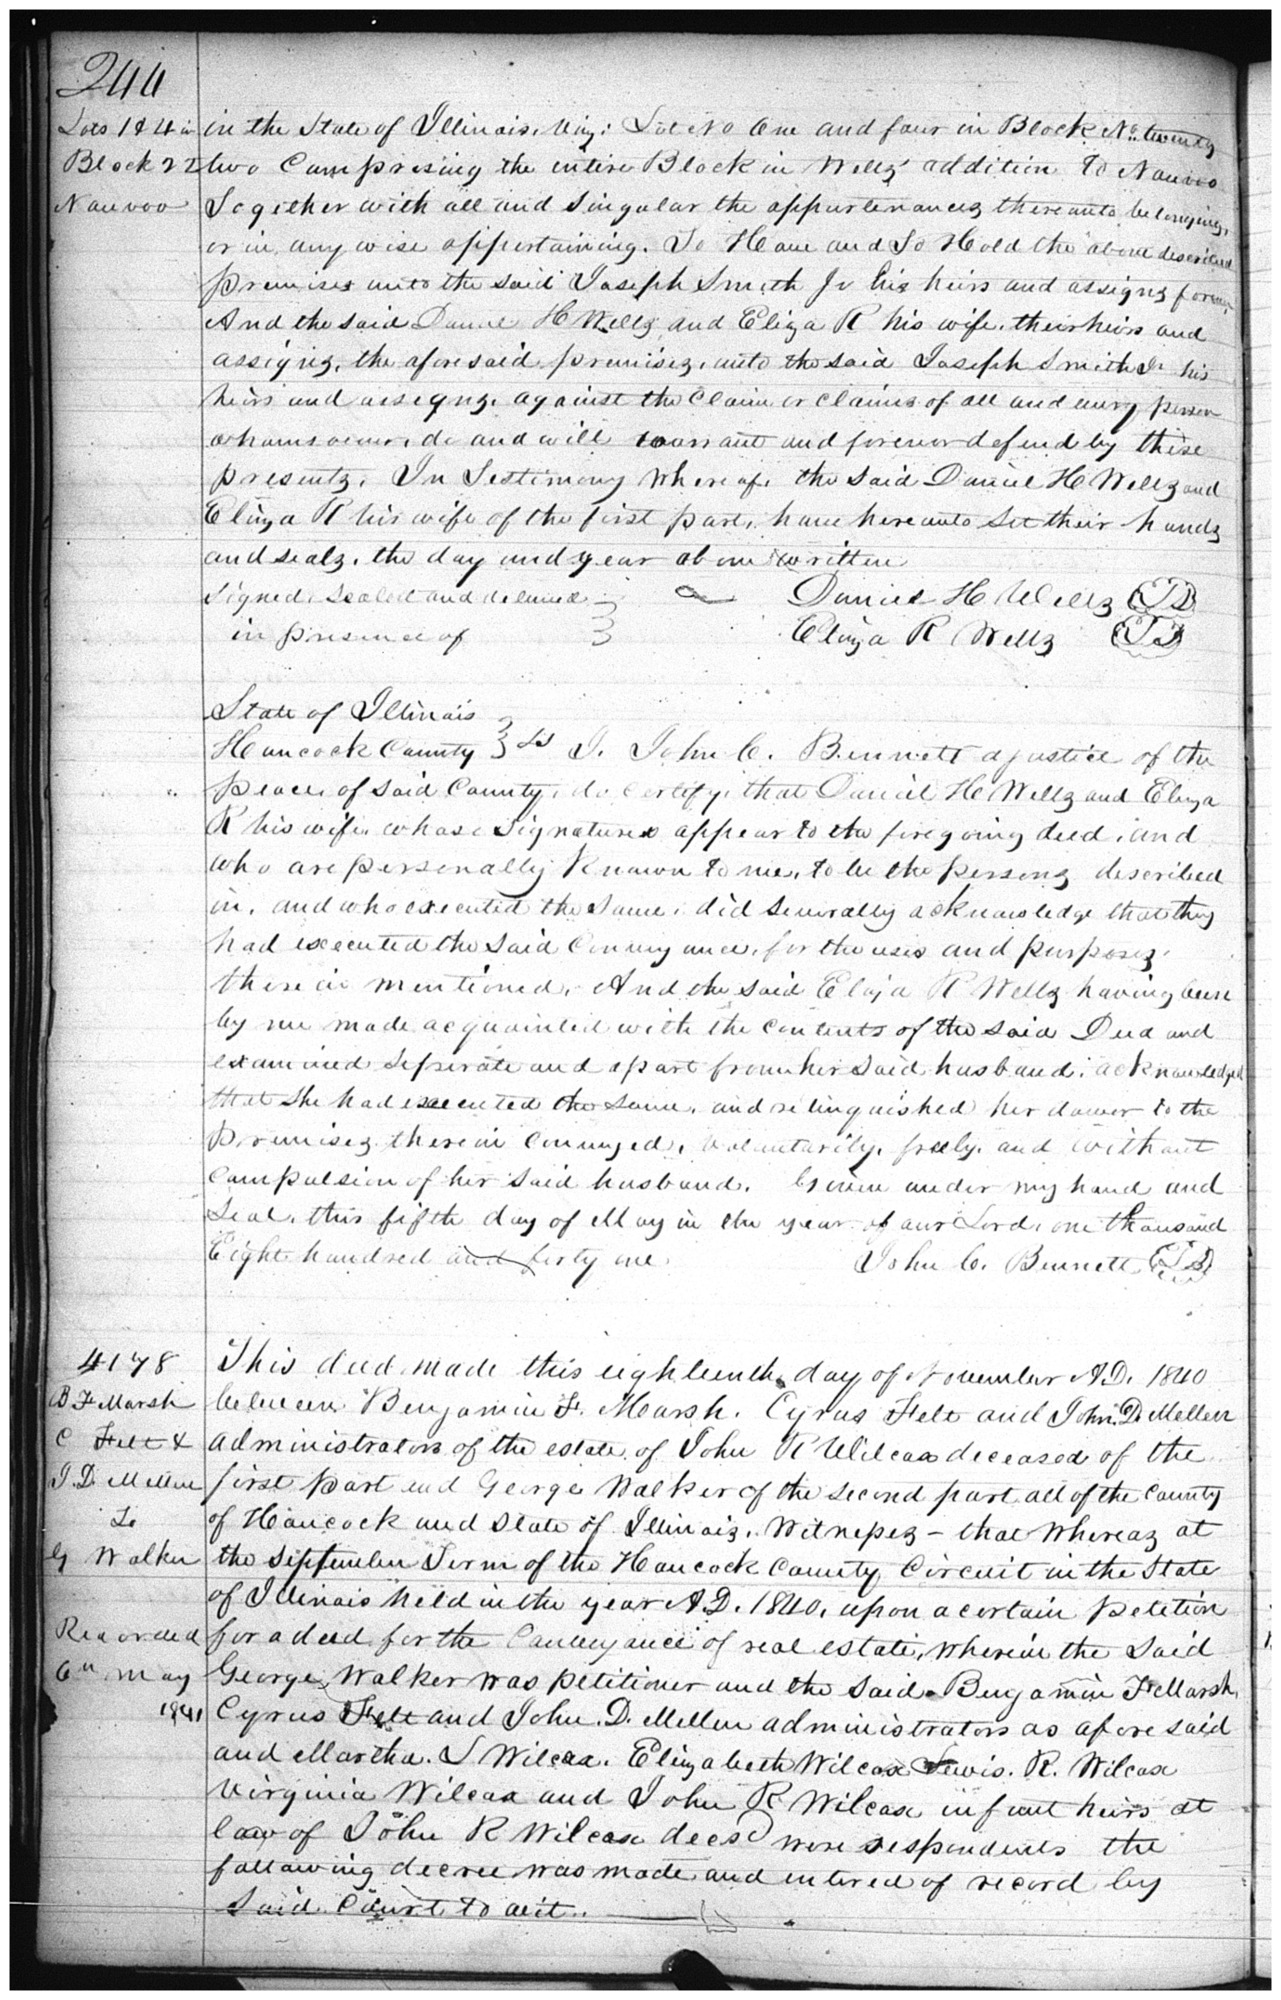 244
Lots 1 & 4 in
Block 22
Nauvoo
in the State of Illinois, Viz: Lot No One and four in Block No. twenty
two Comprising the entire Block in Wells' addition to Nauvoo
Together with all and Singular the appurtenances thereunto belonging,
or in any wise appertaining. To Have and To Hold the above described
premises unto the said Joseph Smith Jr his heirs and assigns forever,
And the said Daniel H Wells, and Eliza R his wife, their heirs and
assigns, the aforesaid premises, unto the said Joseph Smith Jr his
heirs and assigns, against the Claim or Claims of all and every person
whomsoever, do and will warrant and forever defend by these
presents. In Testimony Whereof, the said Daniel H Wells and
Eliza R his wife of the first part, have hereunto Set their hands
and seals, the day and year above written
Signed Sealed and delivered
in presence of
Daniel H Wells
Eliza R Wells
State of Illinois
Hancock County Ss I, John C. Bennett a justice of the
peace, of said County, do Certify, that Daniel H Wells and Eliza
R his wife, whose Signatures appear to the foregoing deed, and
who are personally Known to me, to be the persons described
in, and who executed the Same, did Severally acknowledge that they
had executed the Said Conveyance, for the uses and purposes,
therein mentioned. And the said Eliza R Wells having been
by me made acquainted with the Contents of the said Deed and
examined Seperate and apart from her Said husband, acknowledged
that She had executed the Same, and relinquished her dower to the
premises therein Conveyed, Voluntarily, freely, and without
Compulsion of her Said husband. Given under my hand and
Seal, this fifth day of May in the year of our Lord, one thousand
Eight hundred and forty one
John C. Bennett
4178
B F Marsh
C Felt &
J. D. Mellen
To
G Walker
Recorded
6th May
1841
This deed made this eighteenth day of November A.D. 1840
between Benjamin F. Marsh, Cyrus Felt and John D. Mellen
administrators of the estate of John R Wilcox deceased of the
first part and George Walker of the second part all of the County
of Hancock and State of Illinois, Witnesses – that whereas at
the September Term of the Hancock County Circuit in the State
of Illinois held in the year A.D. 1840, upon a certain petition
for a deed for the Conveyance of real estate, wherein the Said
George Walker was petitioner and the Said Benjamin F Marsh,
Cyrus Felt and John. D. Mellen administrators as aforesaid
and Martha. S Wilcox. Elizabeth Wilcox Lewis. R. Wilcox
Virginia Wilcox and John R Wilcox infant heirs at
law of John R Wilcox decsd were respondents the
following decree was made and entered of record by
Said Court to wit.